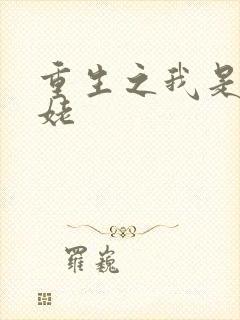 重生之我是
姥
羅巍